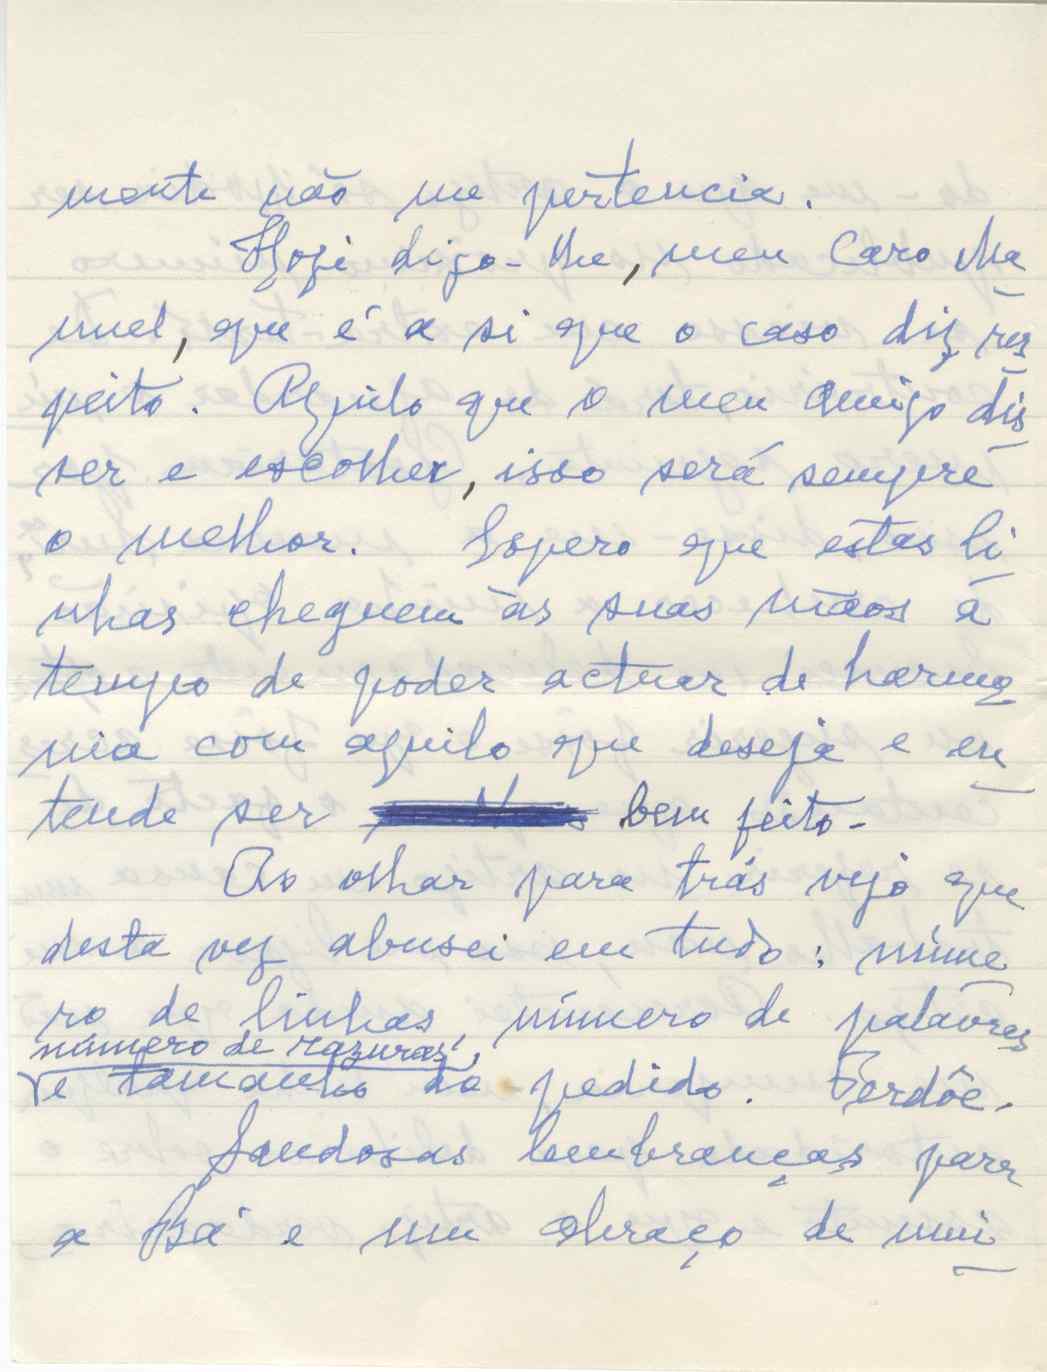 mente não me pertencia.
Hoje digo-lhe, meu Caro Ma
nuel, que é a si que o caso diz res
peito. Aquilo que o meu Amigo dis
ser e escolher, isso será sempre
o melhor. Espero que estas li
nhas cheguem às suas mãos a
tempo de poder actuar de harmo
nia com aquilo que deseja e en
tende ser bem feito-
Ao olhar para trás vejo que
desta vez abusei em tudo: núme
ro de linhas, número de palavras
número de razuras,
e tamanho do pedido. Perdôe.
Saudosas lembranças para
a Bá e um abraço de mui